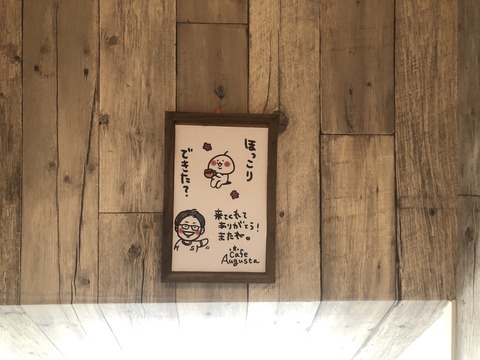 ほっこり
できた？
来てくれて
ありがとう！
またね。
Cafe
Augusta